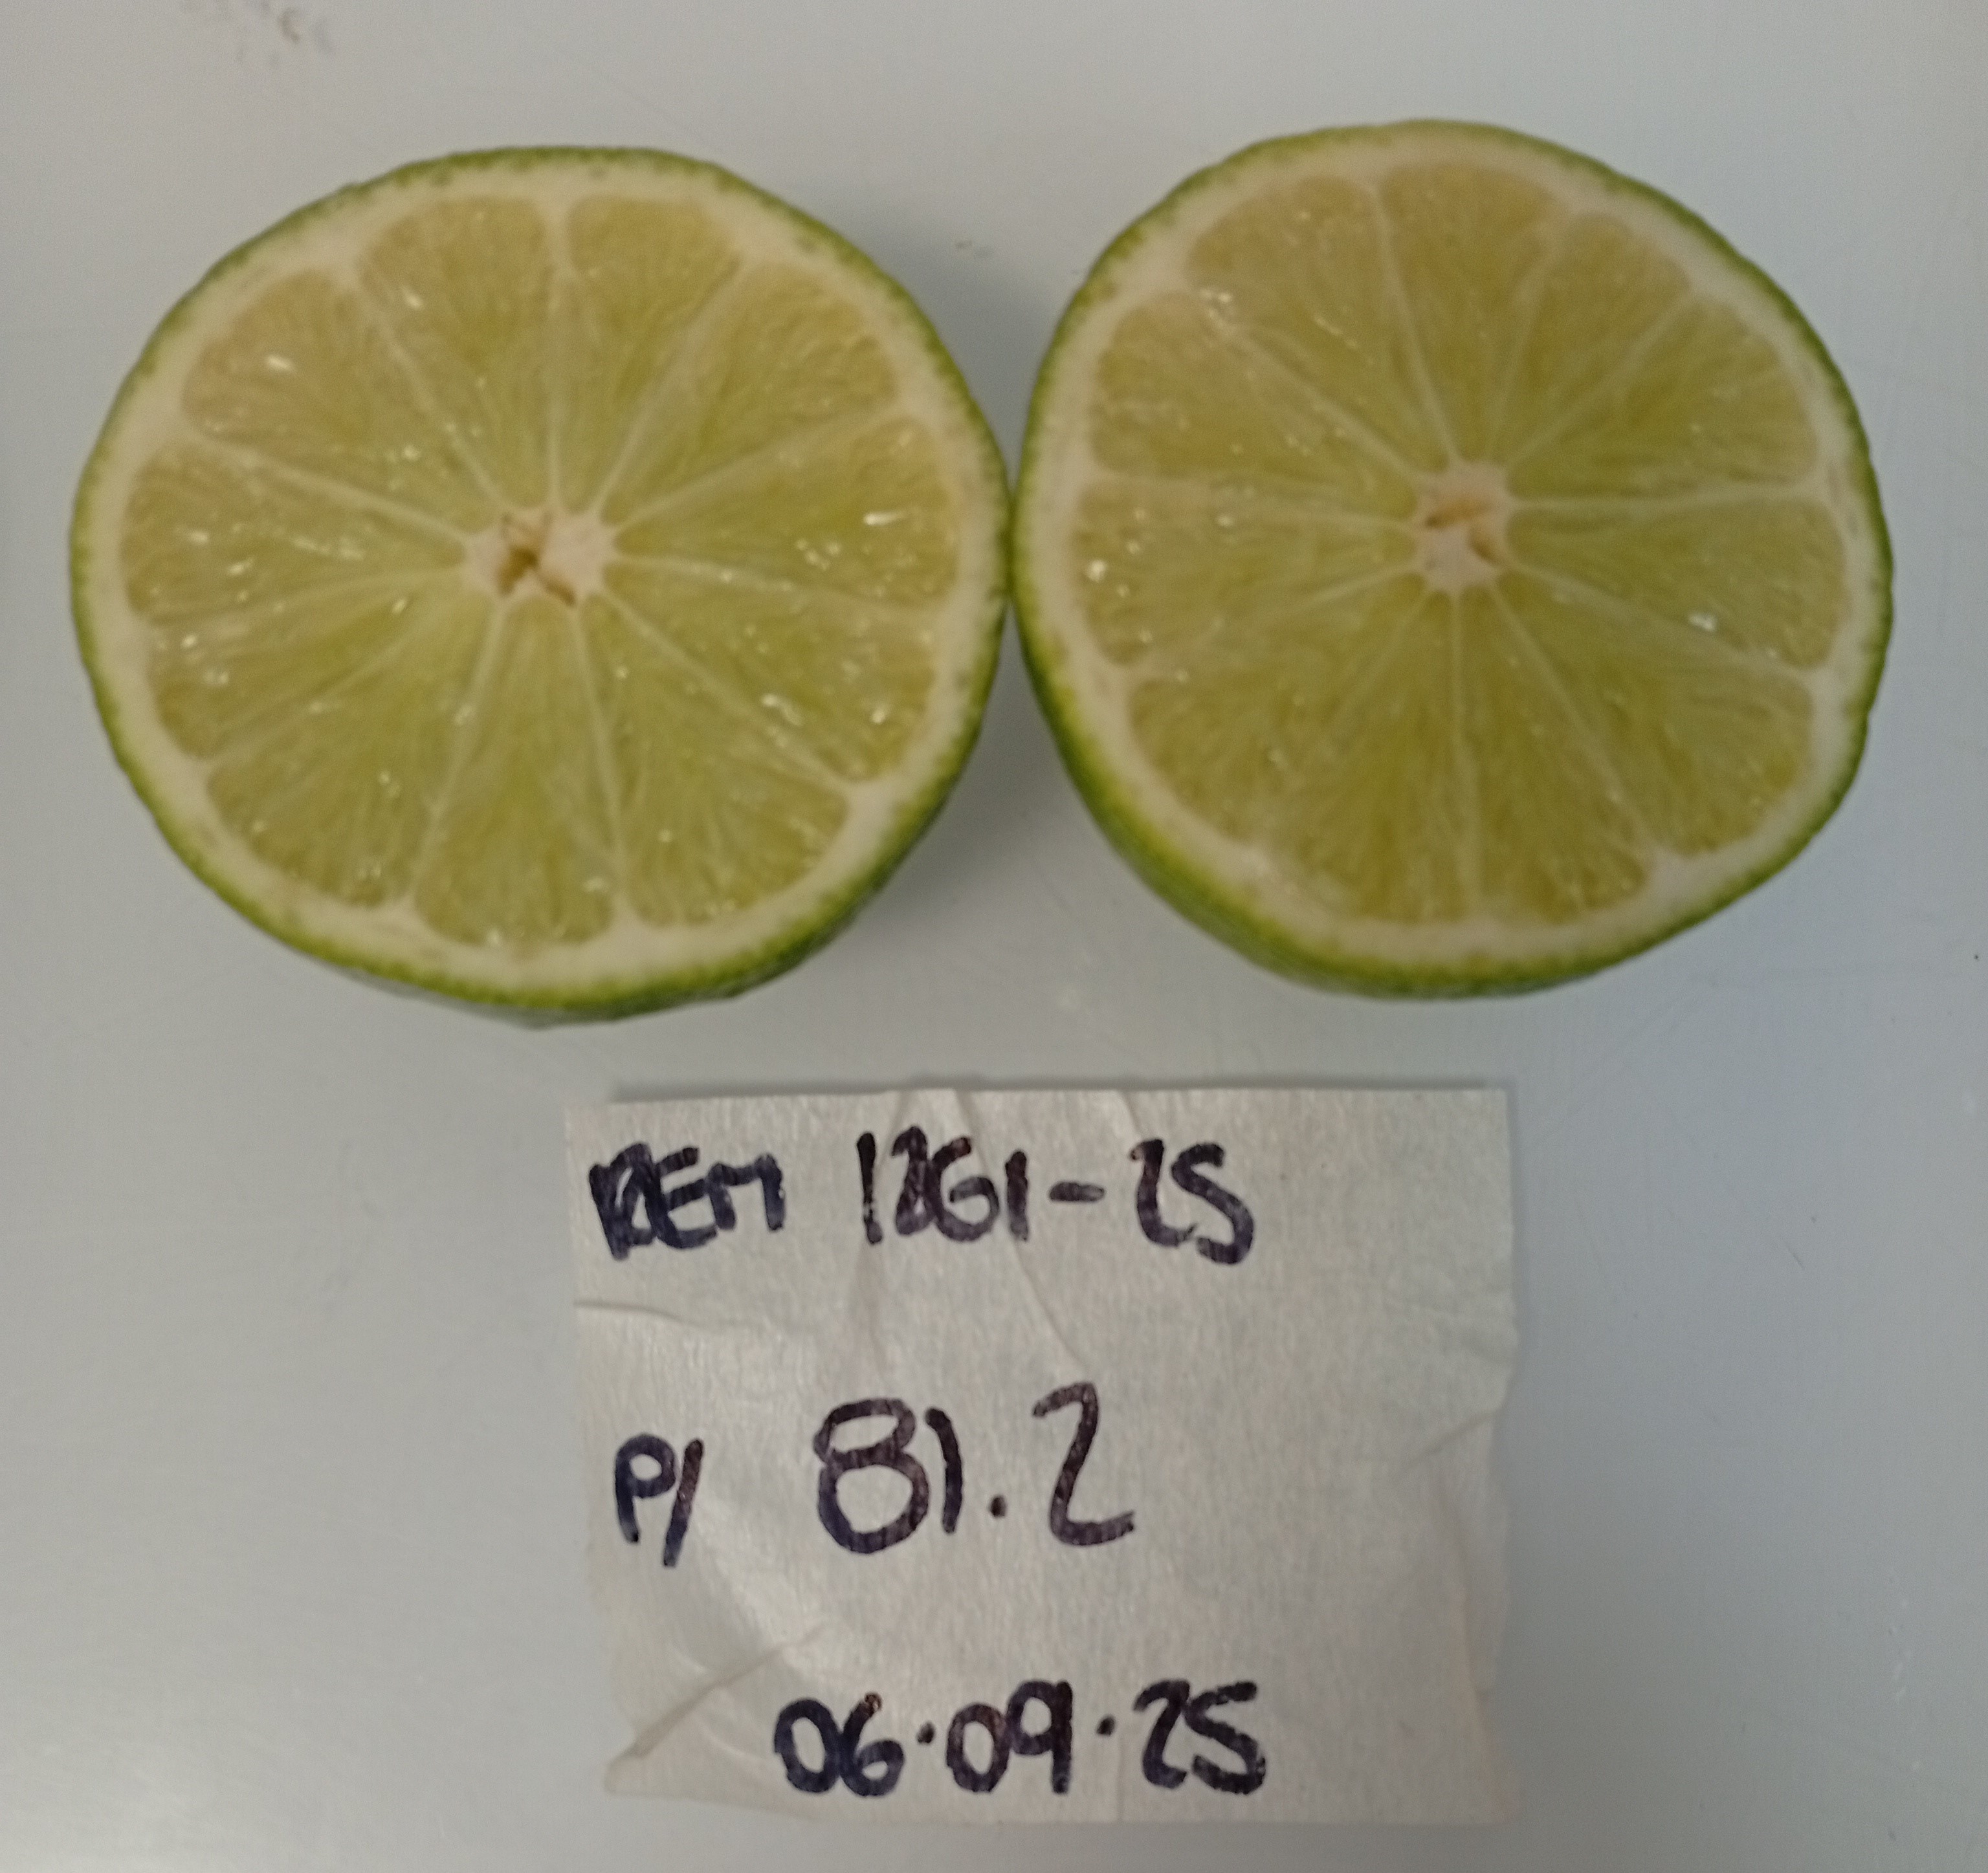 REM 1261-25
P/ 81.2
06.09.25